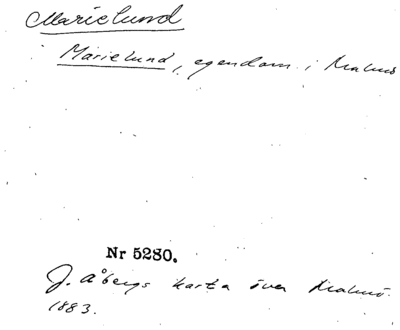 Marielund
Marielund, egendom i Malmö
Nr 5280.
J. Åbergs karta över Malmö.
1883.